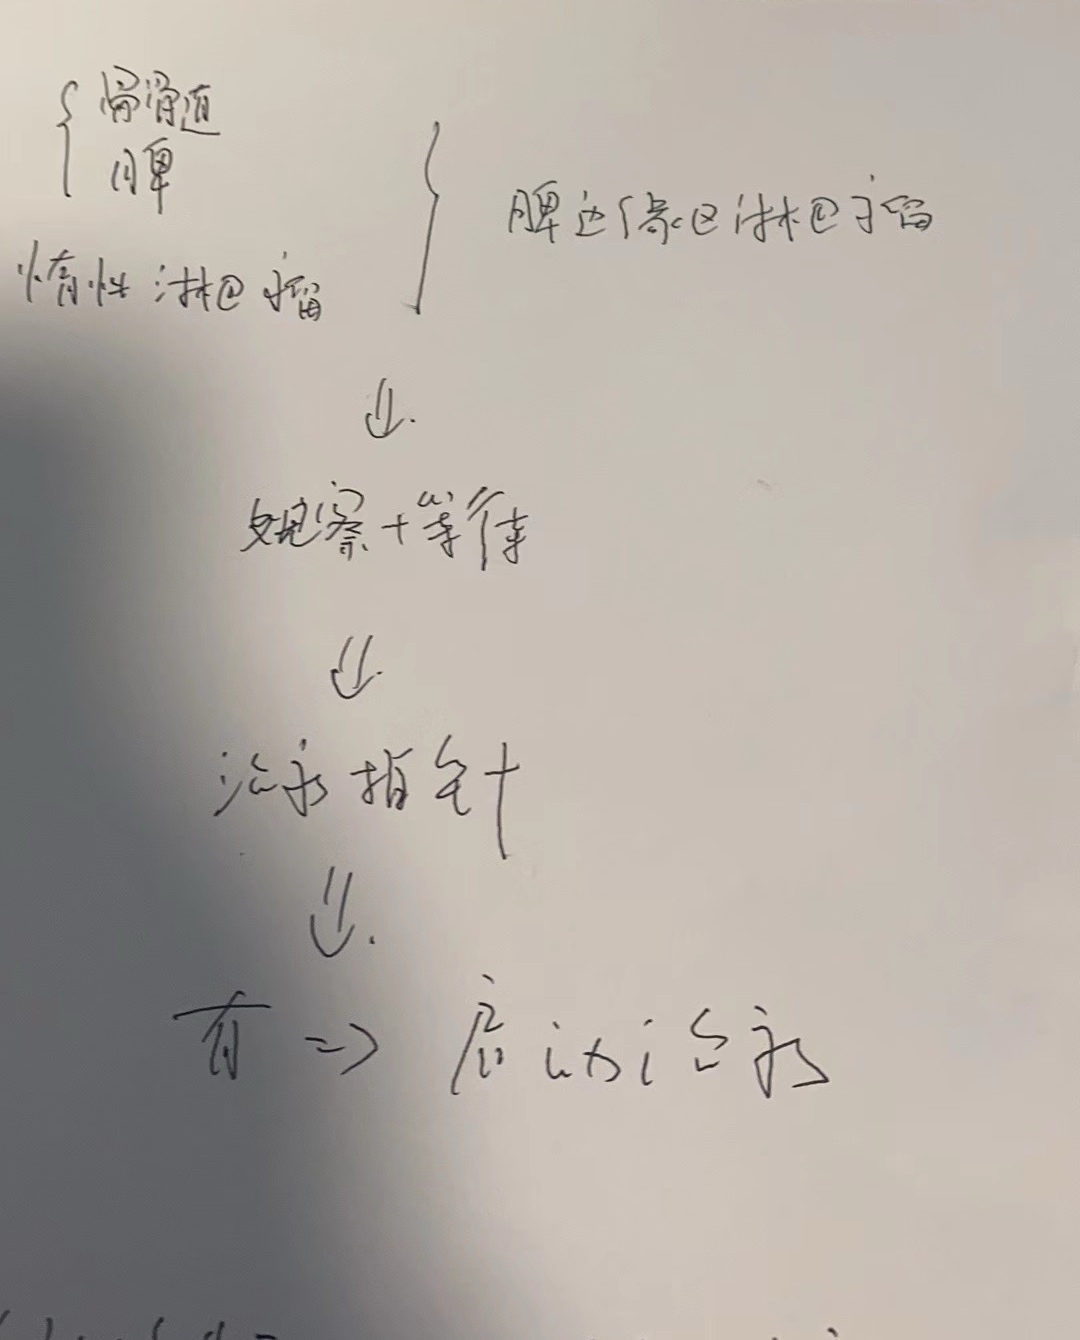 骨髓
脾
惰性 淋巴瘤
脾边缘区淋巴瘤
观察+等待
治疗指针
有 => 启动治疗